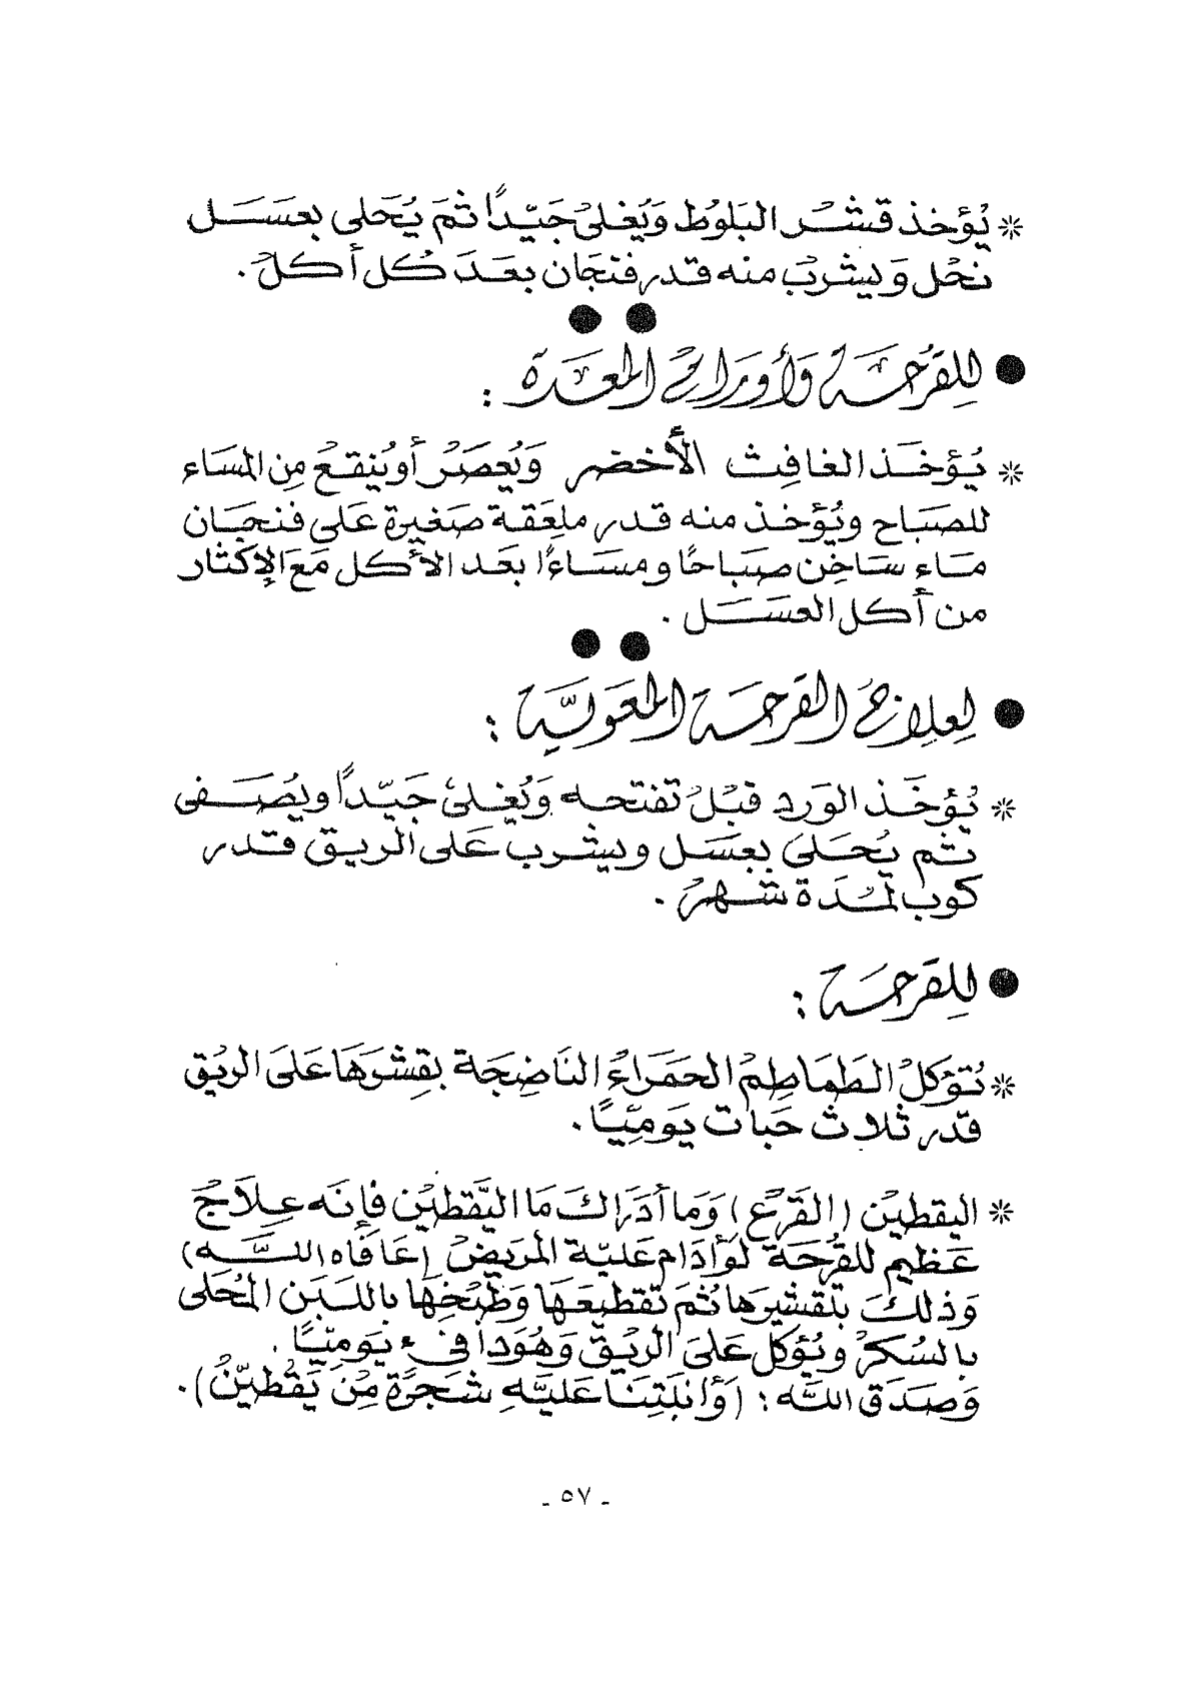 * يُؤخذ قشر البَلوُط وَيُغلىُ جَيّداً ثمَ يُحَلى بعسَل
نحْل وَيشربُ منه قدر فنجَان بعَدَ كُل أكلْ.
● للِقرُحَة وَأورَام المعَدَة :
* يُؤخَذ الغافِث الأخضر وَيُعصَرُ أو يُنقعُ مِن المسَاء
للصبَاح ويُؤخذ منه قدر ملِعَقة صَغيرة عَلى فنجَان
مَاء سَاخِن صبَاحًا ومسَاءًا بعَد الأكل مَعَ الإكثار
من أكل العسَل .
● لِعلاج القرحَة المعَويَّة :
* يُؤخَذ الوَرد قبْلُ تفتحه وَيُغلىُ جَيّداً ويُصَفى
ثم يُحَلىَ بعسَل ويشرب عَلى الريق قدر
كوب لمُدَة شهرُ .
● للِقرحَة :
* تُؤكلُ الطَمَاطِمُ الحَمَراءُ النَاضِجَة بقِشرَهَا عَلىَ الريُق
قدر ثلاث حَبات يَومِّيًا .
* اليقطيْن (القَرْع) وَمَا أدَرَاكَ مَا اليَّقطيْن فإِنَه عِلاَجُ
عَظيم للقُرحَة لوَأدَام عَليّة المريَضُ (عَافَاه اللَّه)
وَذلكَ بتقشيرَها ثُمَ تقطيعَهَا وَطبْخِهَا باللبَن المُحَلى
بالسُكرُ ويُؤكل عَلىَ الريُق وَهُوَ دافىء يَومِيًّا .
وَصدَق اللَّه : (وَأنبَتِنَا عَليَّهِ شجَرَةً مِنْ يَقْطيّنُ) .
- ٥٧ -